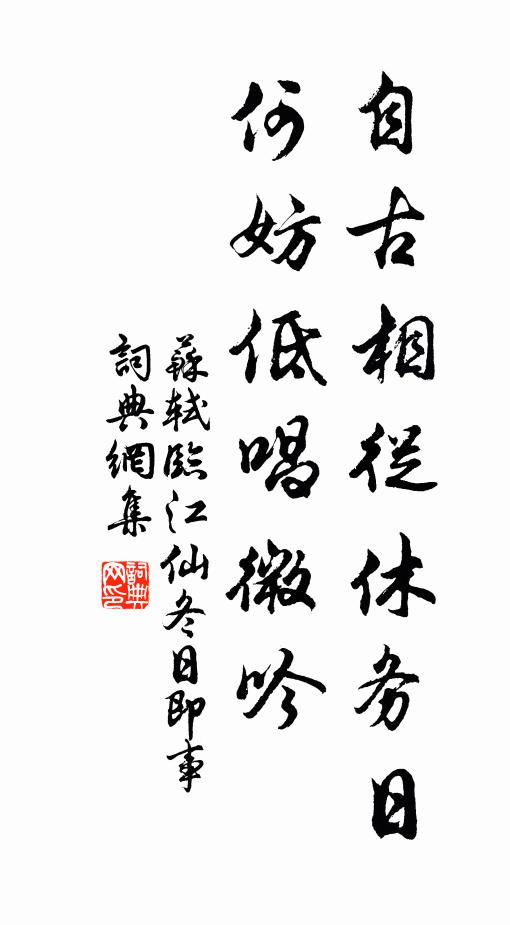 自古相從休务日
何妨低唱微吟
蘇軾臨江仙冬日即事
詞典網集
詞典
网印